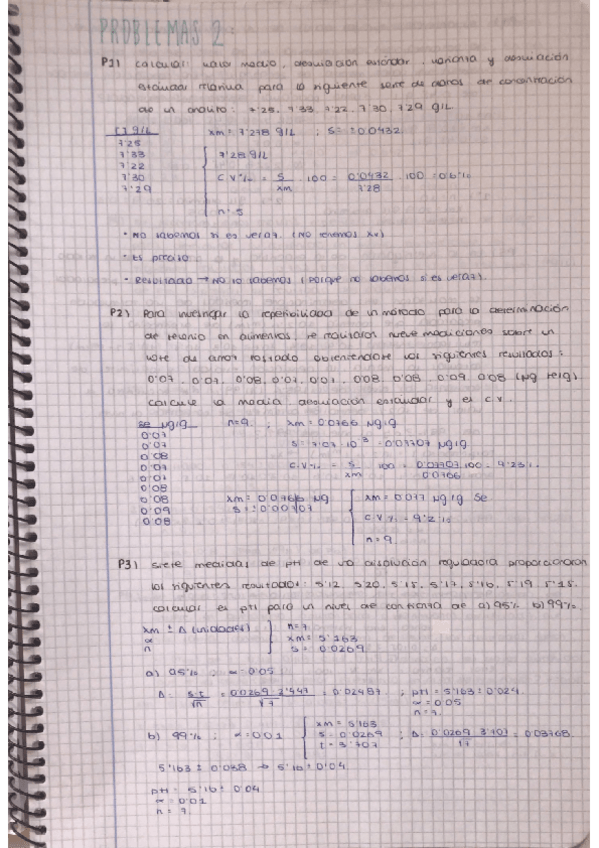 PROBLEMAS 2:
P1) Calcular: valor medio, desviación estándar, varianza y desviación
estándar relativa para la siguiente serie de datos de concentración
de un analito: 7'25, 7'33, 7'22, 7'30, 7'29 g/L.
[ ] g/L xm = 7'278 g/L ; s = ±0'0432
7'25
7'33 7'28 g/L
7'22
7'30 C.V% = s/xm · 100 = 0'0432/7'28 · 100 = 0'6%
7'29
n = 5
- No sabemos si es veraz. (No tenemos xv)
- Es preciso
- Resultado → No lo sabemos (porque no sabemos si es veraz).
P2) Para investigar la repetibilidad de un método para la determinación
de selenio en alimentos, se realizaron nueve mediciones sobre un
lote de arroz tostado obteniéndose los siguientes resultados:
0'07, 0'07, 0'08, 0'07, 0'07, 0'08, 0'08, 0'09, 0'08 (µg Se/g)
calcule la media, desviación estándar y el C.V.
Se µg/g n=9 ; xm = 0'0766 µg/g
0'07
0'07 s = 7'07 · 10⁻³ = 0'00707 µg/g
0'08
0'07 C.V.% = s/xm · 100 = 0'00707/0'0766 · 100 = 9'23%
0'07
0'08
0'08 xm = 0'0766 µg xm = 0'077 µg/g Se
0'09 s = 0'00707
0'08 C.V% = 9'2%
n = 9
P3) Siete medidas de pH de una disolución reguladora proporcionaron
los siguientes resultados: 5'12, 5'20, 5'15, 5'17, 5'16, 5'19, 5'15.
calcular el pH para un nivel de confianza de a) 95% b) 99%.
xm ± Δ (unidades) n = 7
α xm = 5'163
n s = 0'0269
a) 95% ; α = 0'05
Δ = s·t/√n = 0'0269 · 2'447/√7 = 0'02487 ; pH = 5'163 ± 0'024
α = 0'05
n = 7
b) 99% ; α = 0'01 xm = 5'163
s = 0'0269 ; Δ = 0'0269 · 3'707/√7 = 0'03768
t = 3'707
5'163 ± 0'038 → 5'16 ± 0'04
pH = 5'16 ± 0'04
α = 0'01
n = 7